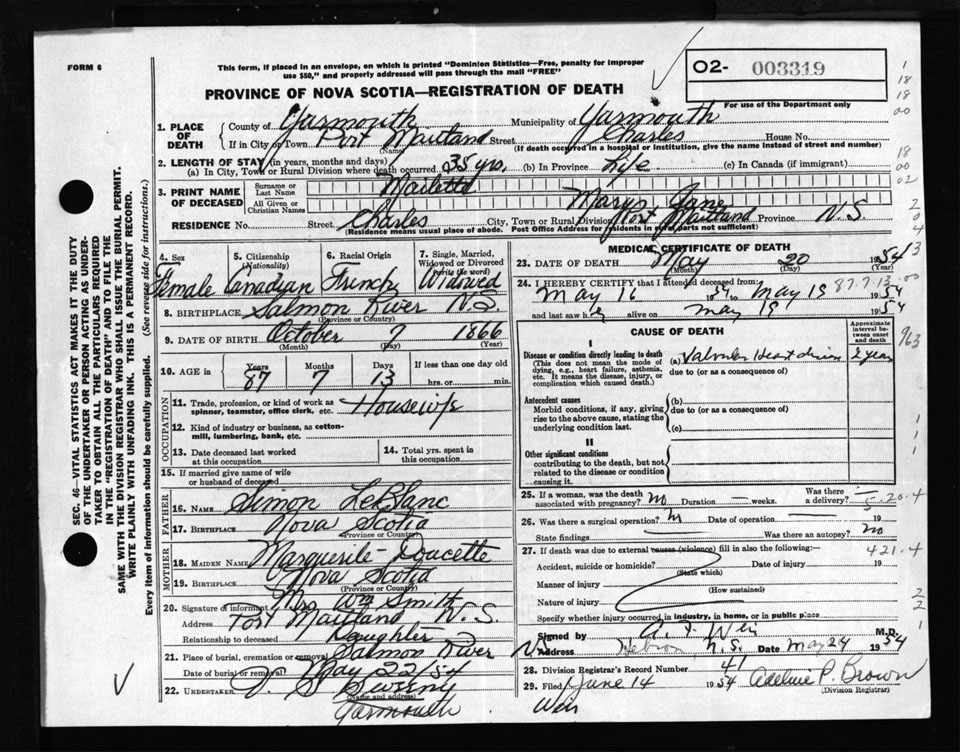 FORM 6
This form, if placed in an envelope, on which is printed "Dominion Statistics—Free, penalty for improper
use $50," and properly addressed will pass through the mail "FREE"
PROVINCE OF NOVA SCOTIA—REGISTRATION OF DEATH
02- 003319
For use of the Department only
1. PLACE OF DEATH
County of Yarmouth Municipality of Yarmouth
If in City or Town Port Maitland Street Charles House No.
(Name) (If death occurred in a hospital or institution, give the name instead of street and number)
2. LENGTH OF STAY (in years, months and days)
(a) In City, Town or Rural Division where death occurred 35 yrs. (b) In Province Life (c) In Canada (if immigrant)
3. PRINT NAME OF DECEASED
Surname or Last Name
All Given or Christian Names Mary Jane
RESIDENCE No. Street Charles City, Town or Rural Division Port Maitland Province N.S.
(Residence means usual place of abode. Post Office Address for residents in rural parts not sufficient)
4. Sex Female
5. Citizenship (Nationality) Canadian
6. Racial Origin French
7. Single, Married, Widowed or Divorced (write the word) Widowed
8. BIRTHPLACE Salmon River N.S.
(Province or Country)
9. DATE OF BIRTH October 7 1866
(Month) (Day) (Year)
10. AGE in Years 87 Months 7 Days 13 If less than one day old hrs. or min.
OCCUPATION
11. Trade, profession, or kind of work as spinner, teamster, office clerk, etc. Housewife
12. Kind of industry or business, as cotton-mill, lumbering, bank, etc.
13. Date deceased last worked at this occupation
14. Total yrs. spent in this occupation
15. If married give name of wife or husband of deceased
FATHER
16. NAME Simon LeBlanc
17. BIRTHPLACE Nova Scotia
(Province or Country)
MOTHER
18. MAIDEN NAME Marguerite Doucette
19. BIRTHPLACE Nova Scotia
(Province or Country)
20. Signature of informant Mrs Wm Smith
Address Port Maitland N.S.
Relationship to deceased Daughter
21. Place of burial, cremation or removal Salmon River N
Date of burial or removal May 22/54
22. UNDERTAKER
(Name and address)
Yarmouth
MEDICAL CERTIFICATE OF DEATH
23. DATE OF DEATH May 20 1954
(Month) (Day) (Year)
24. I HEREBY CERTIFY that I attended deceased from:
May 16 1954 to May 19 1954
and last saw h alive on May 19 1954
CAUSE OF DEATH
Approximate interval between onset and death
I
Disease or condition directly leading to death
(This does not mean the mode of dying, e.g., heart failure, asthenia, etc. It means the disease, injury, or complication which caused death.)
(a) Valvular Heart disease 2 years
due to (or as a consequence of)
Antecedent causes
Morbid conditions, if any, giving rise to the above cause, stating the underlying condition last.
(b)
due to (or as a consequence of)
(c)
II
Other significant conditions
contributing to the death, but not related to the disease or condition causing it.
25. If a woman, was the death associated with pregnancy? No Duration — weeks. Was there a delivery? —
26. Was there a surgical operation? Date of operation — 19
State findings Was there an autopsy? no
27. If death was due to external causes (violence) fill in also the following:—
Accident, suicide or homicide? Date of injury 19
(State which)
Manner of injury
(How sustained)
Nature of injury
Specify whether injury occurred in industry, in home, or in public place
Signed by Weir M.D.
Address Hebron, N.S. Date May 24 1954
28. Division Registrar's Record Number 41
29. Filed June 14 1954 Adelaie P. Brown
(Division Registrar)
Weir
87.7.13
963
5 20.4
421.4
SEC. 46—VITAL STATISTICS ACT MAKES IT THE DUTY
OF THE UNDERTAKER OR PERSON ACTING AS UNDER-
TAKER TO OBTAIN ALL THE PARTICULARS REQUIRED
IN THE "REGISTRATION OF DEATH" AND TO FILE THE
SAME WITH THE DIVISION REGISTRAR WHO SHALL ISSUE THE BURIAL PERMIT.
WRITE PLAINLY WITH UNFADING INK. THIS IS A PERMANENT RECORD.
Every item of information should be carefully supplied. (See reverse side for instructions.)